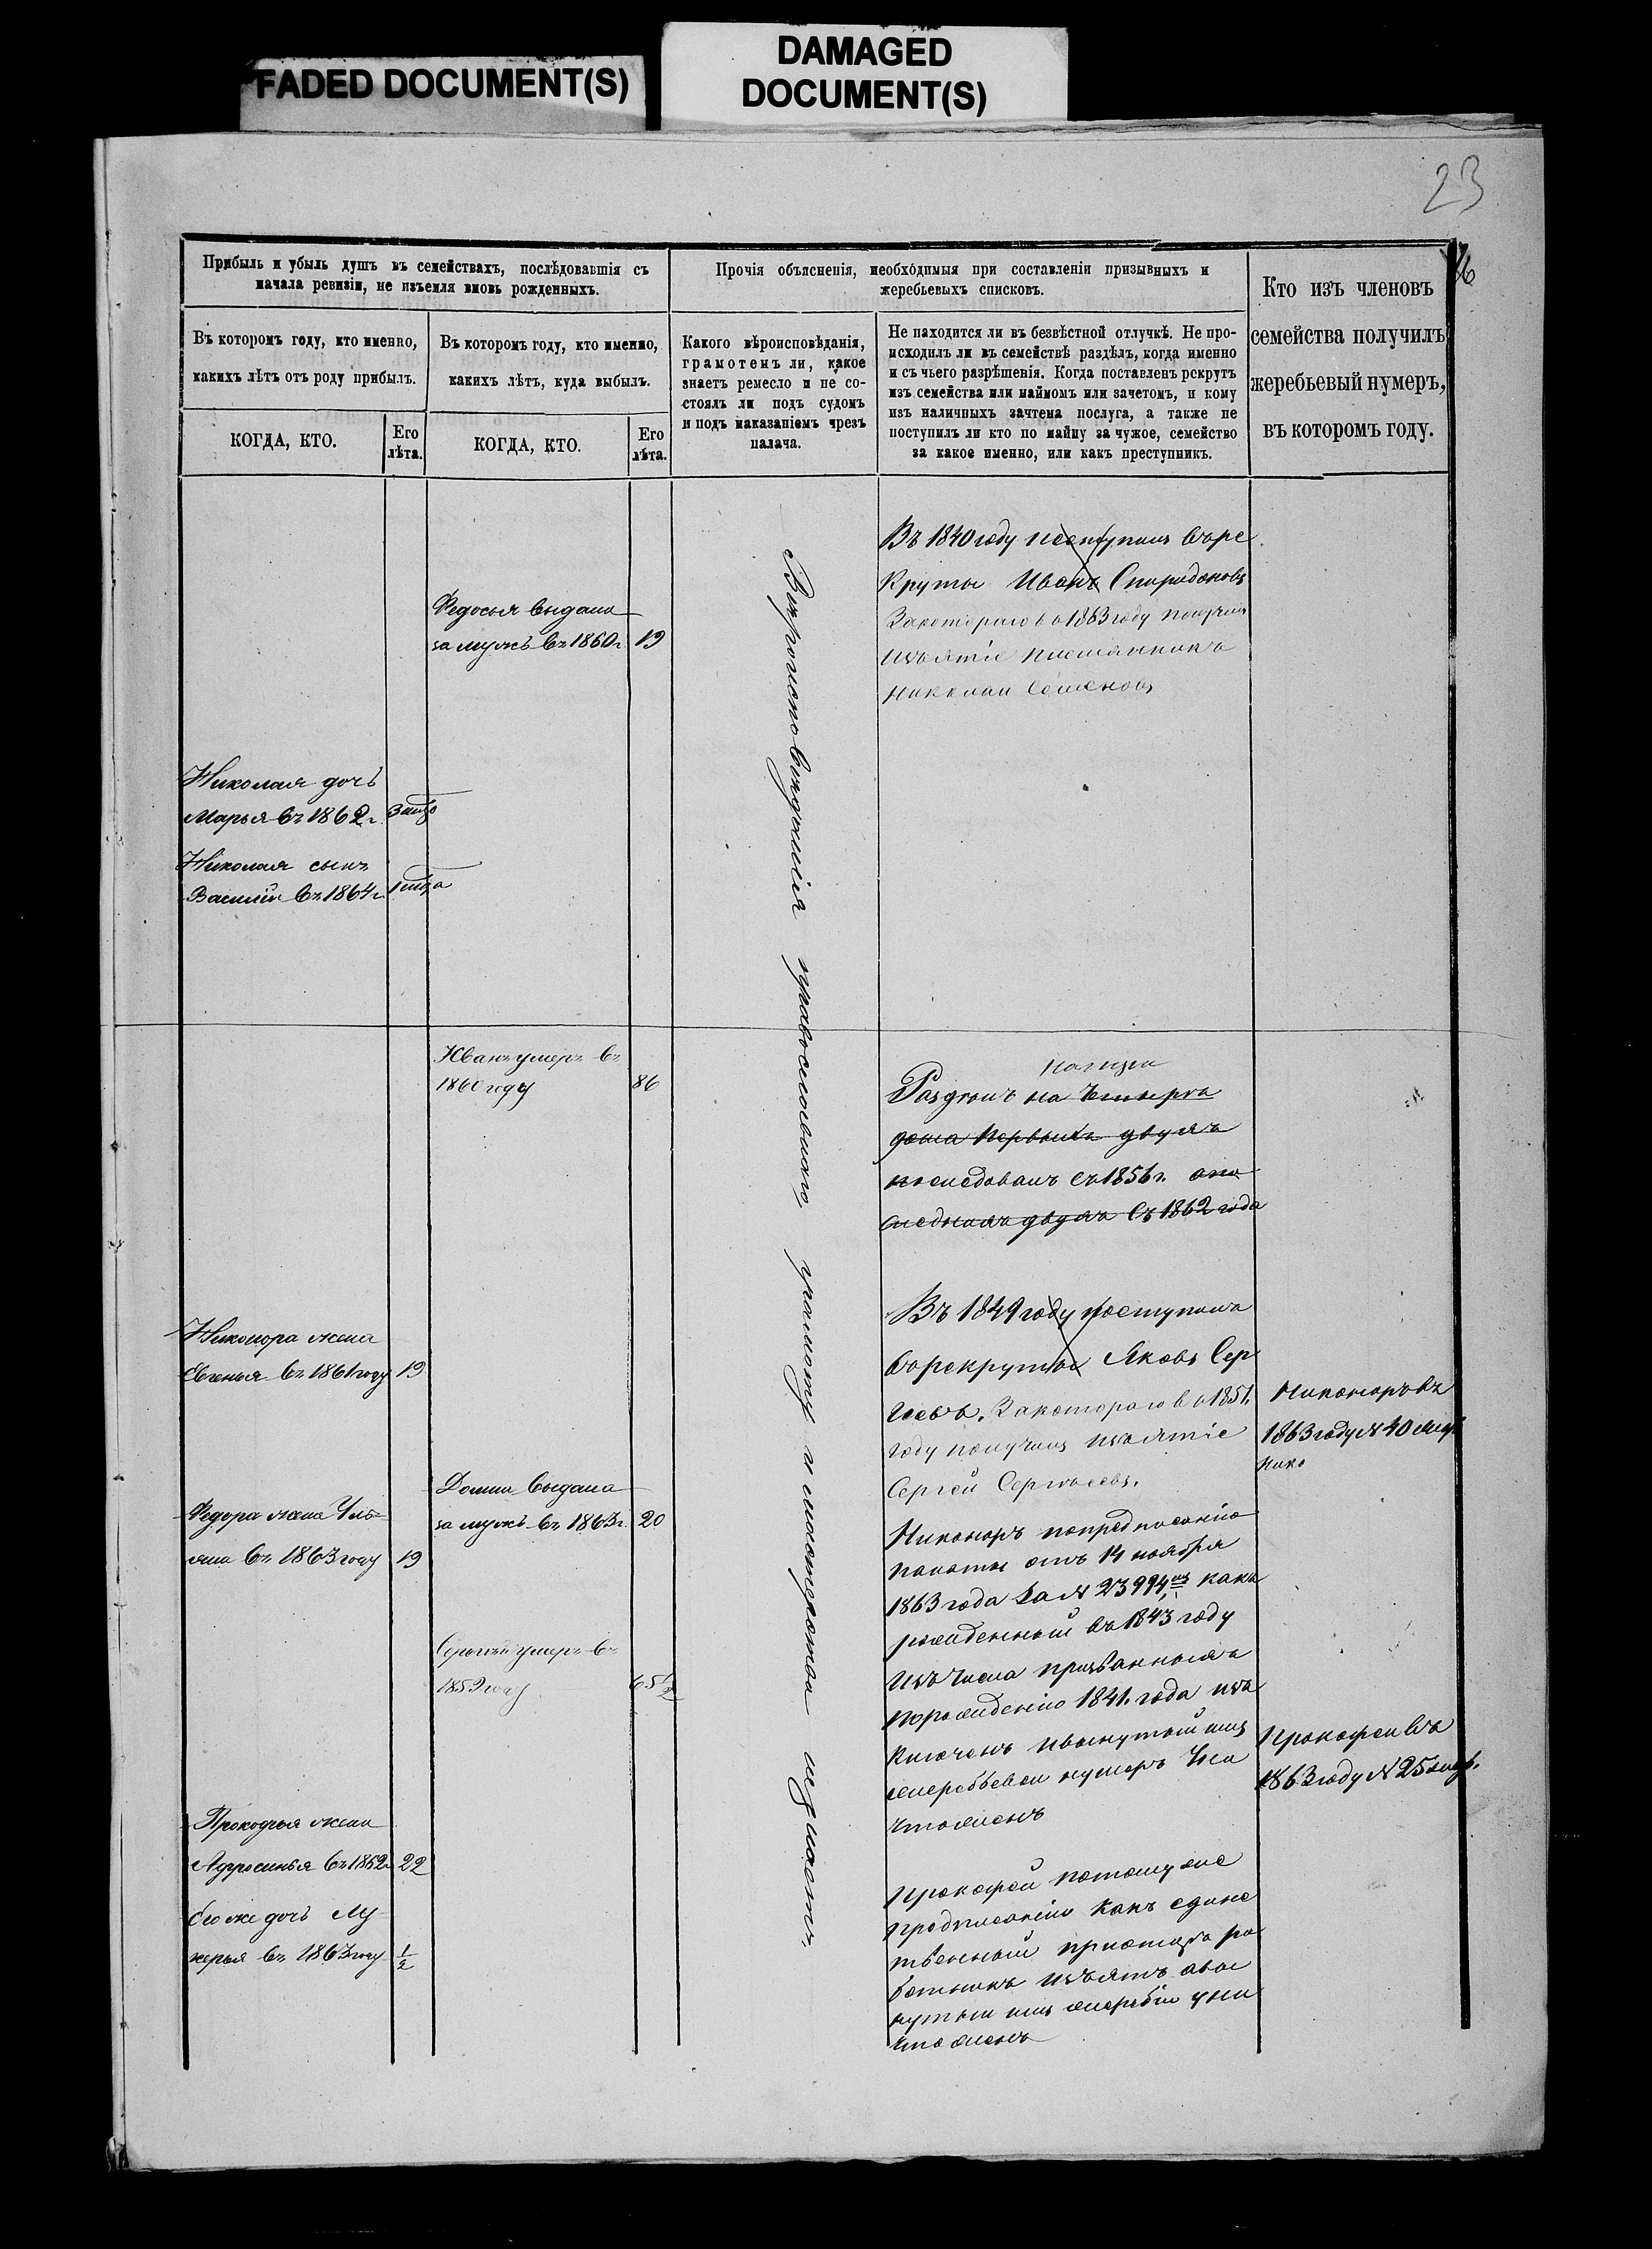 FADED DOCUMENT(S)
DAMAGED
DOCUMENT(S)
23
Прибыль и убыль душъ въ семействахъ, послѣдовавшія съ
начала ревизіи, не изъемля вновь рожденныхъ.
Въ которомъ году, кто именно,
какихъ лѣтъ отъ роду прибылъ.
КОГДА, КТО.
Его
лѣта.
Въ которомъ году, кто именно,
какихъ лѣтъ, куда выбылъ.
КОГДА, КТО.
Его
лѣта.
Прочія объясненія, необходимыя при составленіи призывныхъ и
жеребьевыхъ списковъ.
Какого вѣроисповѣданія,
грамотенъ ли, какое
знаетъ ремесло и не со-
стоялъ ли подъ судомъ
и подъ наказаніемъ чрезъ
палача.
Не находится ли въ безвѣстной отлучкѣ. Не про-
исходилъ ли въ семействѣ раздѣлъ, когда именно
и съ чьего разрѣшенія. Когда поставленъ рекрутъ
изъ семейства или наймомъ или зачетомъ, и кому
изъ наличныхъ зачтена послуга, а также не
поступилъ ли кто по найму за чужое, семейство
за какое именно, или какъ преступникъ.
Кто изъ членовъ
семейства получилъ
жеребьевый нумеръ,
въ которомъ году.
Федосья выдана
за мужъ въ 1860 г.
19
Николая дочь
Марья въ 1862 г.
Николая сынъ
Василій въ 1864 г.
Иванъ умеръ въ
1860 году
86
Никонора жена
Евгенья въ 1861 году
19
Домна выдана
за мужъ въ 1863 г.
20
Федора жена Улья-
яна въ 1863 году
19
Сергѣй умеръ въ
1859 году
Прокофья жена
Афросинья въ 1862
22
его же дочь Лу
керья въ 1863 году
1/2
Вѣроисповѣданія православнаго, грамоту и мастерства не знаетъ.
Въ 1840 году поступилъ въ ре
круты Иванъ Спиридоновъ
За котораго въ 1863 году получилъ
изъятіе племянникъ
Николай Семеновъ
Раздѣлъ на четыре
дома первыхъ двухъ
последовалъ съ 1856 г. а по
следнихъ двухъ съ 1862 года
Въ 1849 году поступилъ
въ рекруты Яковъ Сер
геевъ. За котораго въ 1851
году получилъ изъятіе
Сергей Сергѣевъ.
Никоноръ попредписанію
палаты отъ 14 ноября
1863 года за № 23994, какъ
рожденный въ 1843 году
изъ числа призванныхъ
порожденію 1841 года ис
ключенъ и вынутый имъ
жеребьевой нумеръ уни
чтоженъ
Прокофей потому же
предписанію какъ единс
твенный при отцѣ ра
ботникъ изъятъ а вы
нутый имъ жеребій уни
чтоженъ
Никоноръ въ
1863 году № 40 жер
Нико
Прокофей въ
1863 году № 25 жер.